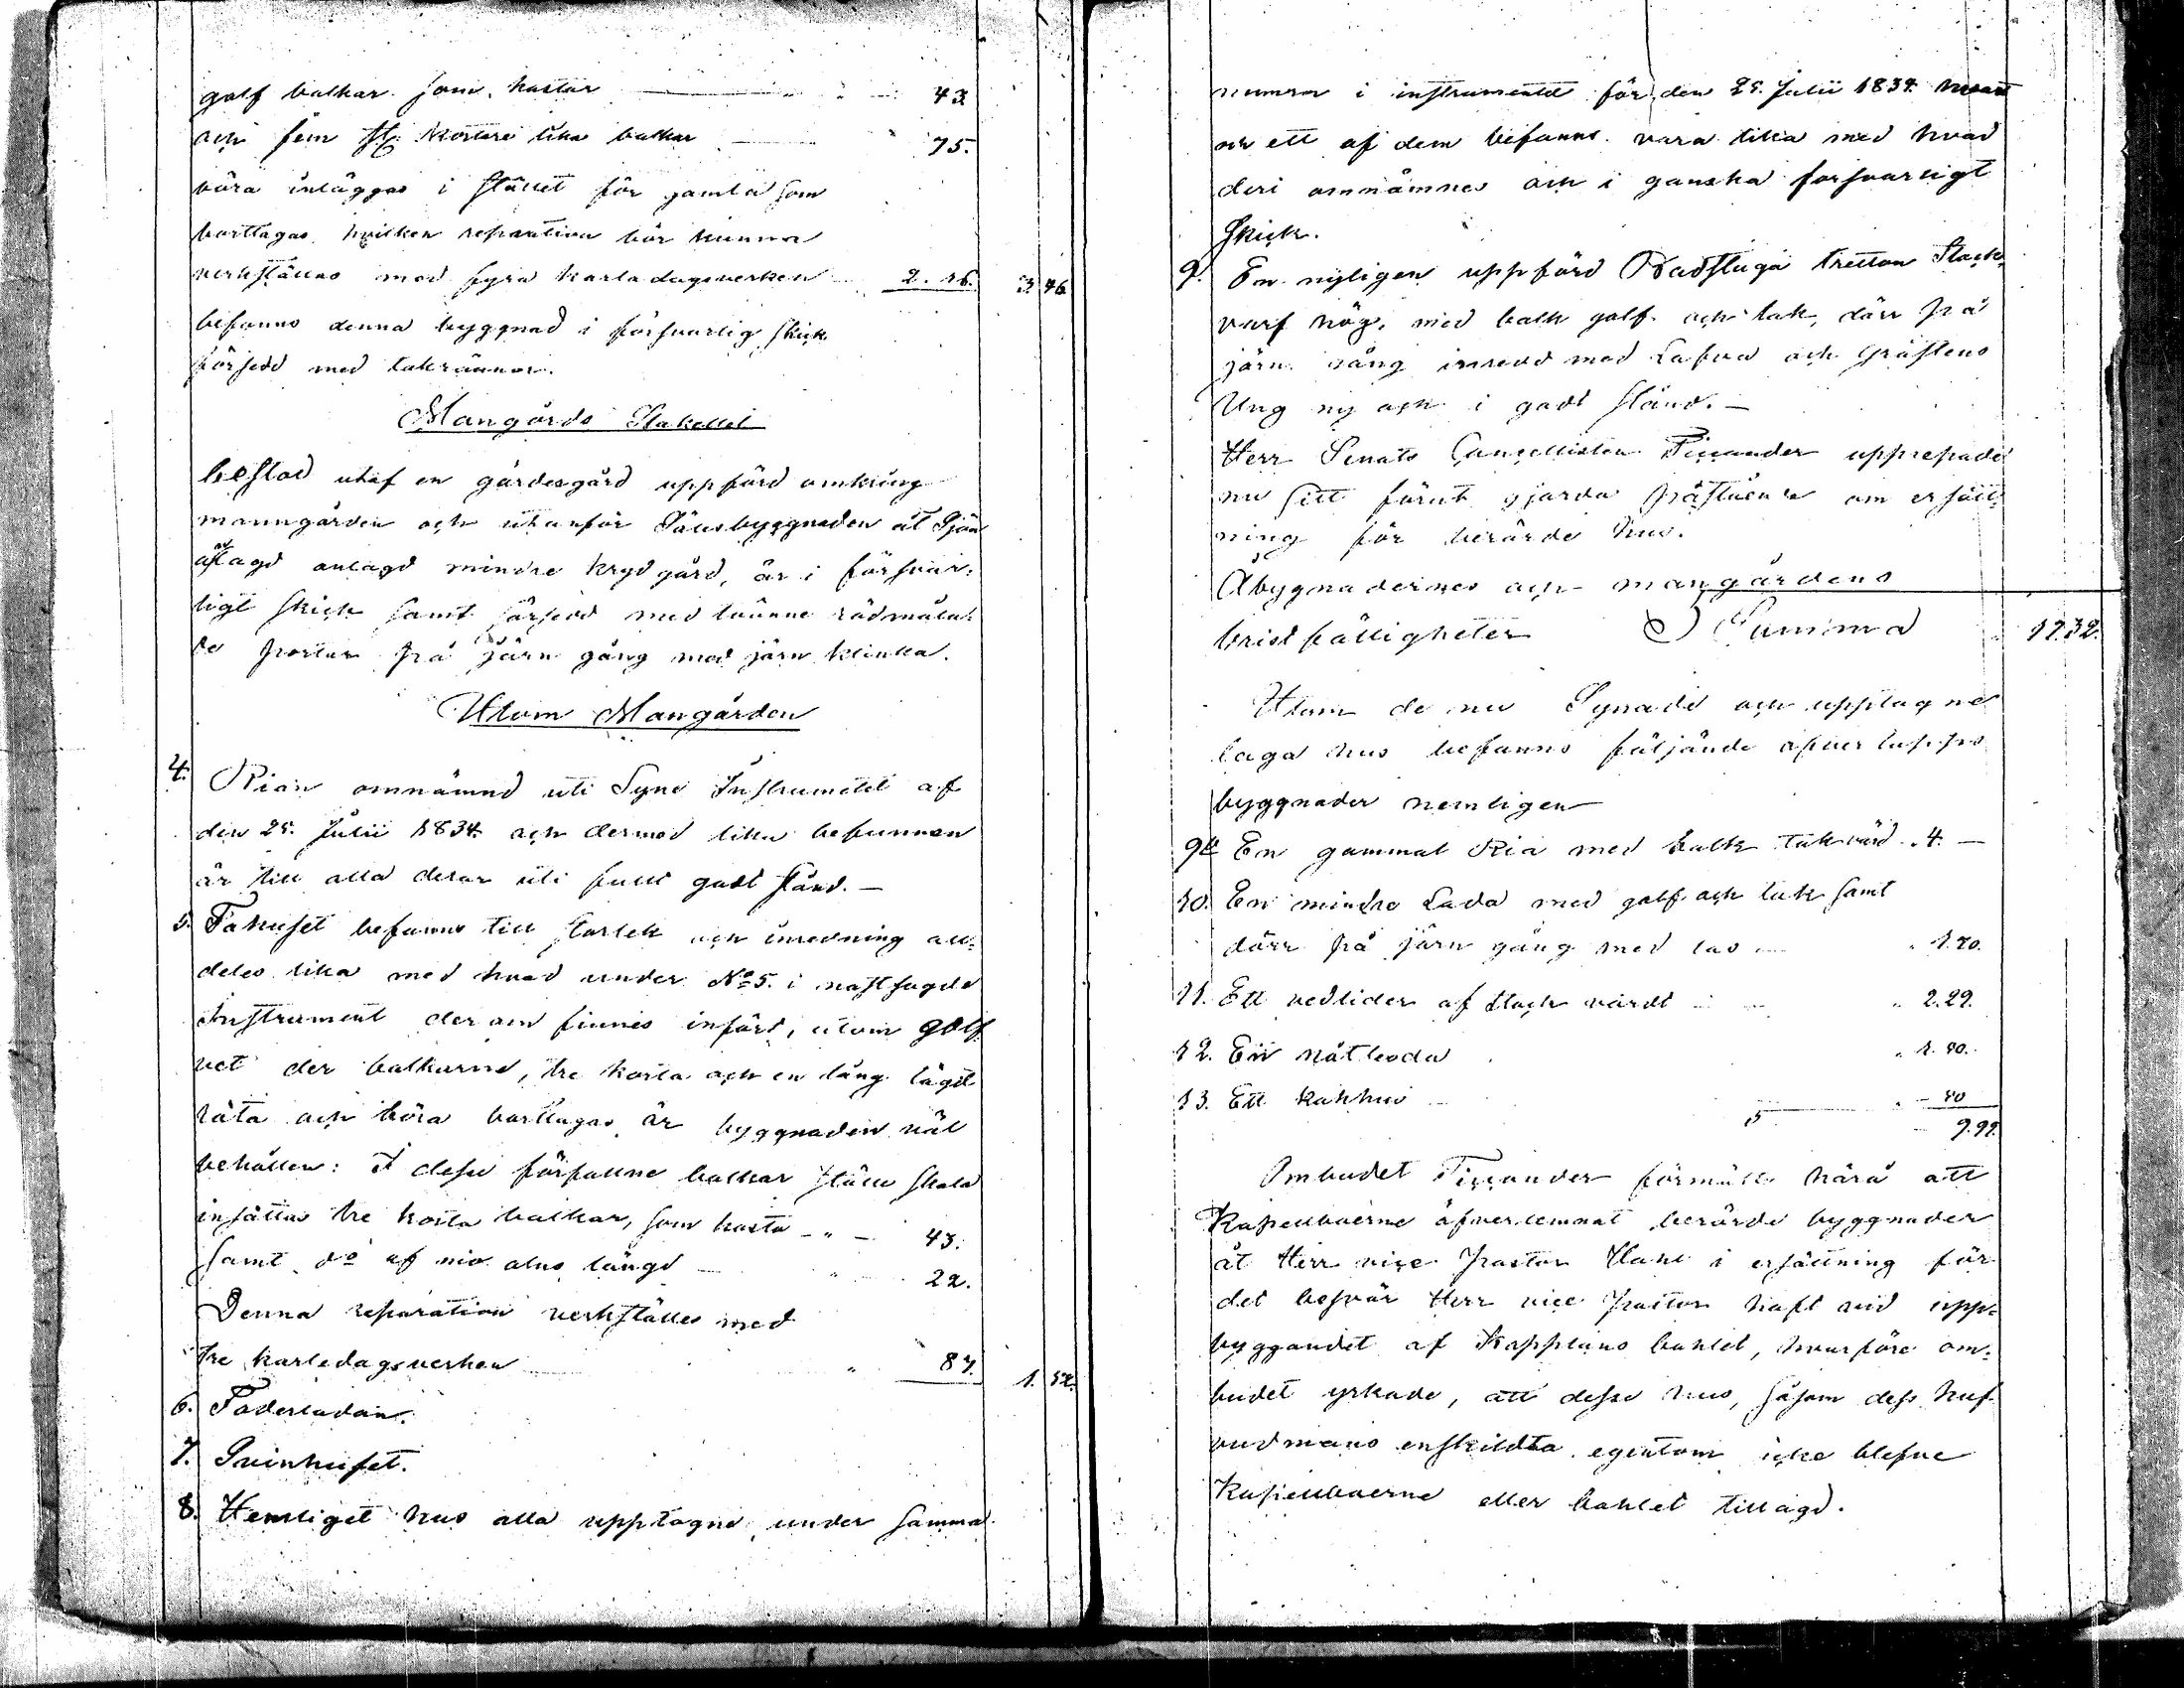 golf balkar som kostar 43.
och fem st. kortare lika balkar 75.
böra inläggas i stället för gamla som
borttagas, hvilken reparation bör kunna
verkställas med fyra karla dagsverken 2. 16. 3. 46
befanns denna byggnad i försvarlig skick
försedd med takrännor.
Mangårds Staketet
bestod utaf en gärdesgård uppförd omkring
manngården och utanför Sätesbyggnaden åt Sjön
anlagd mindre krydgård, är i försvar-
ligt skick samt försedd med tvänne rödmåla-
de portar på järn gång med järn klinka.
Utom Mangården
4. Rian omnämnd uti Syne Instrumetet af
den 25. Julii 1834 och dermed lika befunnen
är till alla delar uti fullt godt stånd. —
5. Fähuset befanns till storlek och inredning all-
deles lika med hvad under No 5. i nästsagde
Instrument derom finnes infört, utom golf
vet der balkarne, tre korta och en lång tagit
röta och böra borttagas är byggnaden väl
behållen: I desse förfallne balkar ställe skola
insättas tre korta balkar, som kosta - " - 43.
samt do af nio alns längd 22.
Denna reparation verkställes med
tre karledagsverken " 87. 1. 52.
6. Foderladan.
7. Svinhuset.
8. Hemliget hus alla upptagne under samma
numror i instrumentet för den 25. Julii 1834. hvart
och ett af dem befanns vara lika med hvad
deri omnämnes och i ganska försvarligt
skick.
9. En nyligen uppförd Badstuga tretton Stock
varf hög, med balk golf och tak, dörr på
järn gång inredd med Lafvar och gråstens
Ung ny och i godt stånd. —
Herr Senats Cancellisten Ticcander upprepade
nu sitt förut gjorda påstående om ersätt-
ning för berörde hus.
Åbygnadernes och mangårdens
bristfälligheter Summa 17.32.
Utom de nu Synade och upptagne
laga hus befanns följande öfverlopps
byggnader nemligen
9de En gammal Ria med balk tak värd " 4. —
10. En mindre Lada med golf och tak samt
dörr på järn gång med lås " 1. 70.
11. Ett vedlider af stock värdt " 2. 29.
12. En nätboda " 1. 80.
13. Ett kokhus " - 80
9. 99.
Ombudet Ticcander förmälte härå att
Kapellboerne öfverlemnat berörde byggnader
åt Herr vice Pastor Hahl i ersättning för
det besvär Herr vice Pastor haft vid upp-
byggandet af Kapplans bohlet, hvarföre om-
budet yrkade, att desse hus, såsom dess huf-
vudmans enskildta egentom icke blefve
Kapellboerne eller bohlet tillägd.